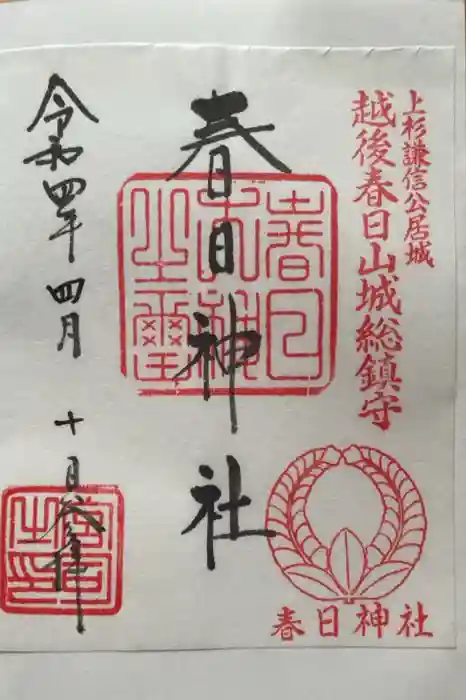 上杉謙信公居城
越後春日山城総鎮守
春日神社
春日神社
令和四年四月十日参拝
春日
大神
之璽